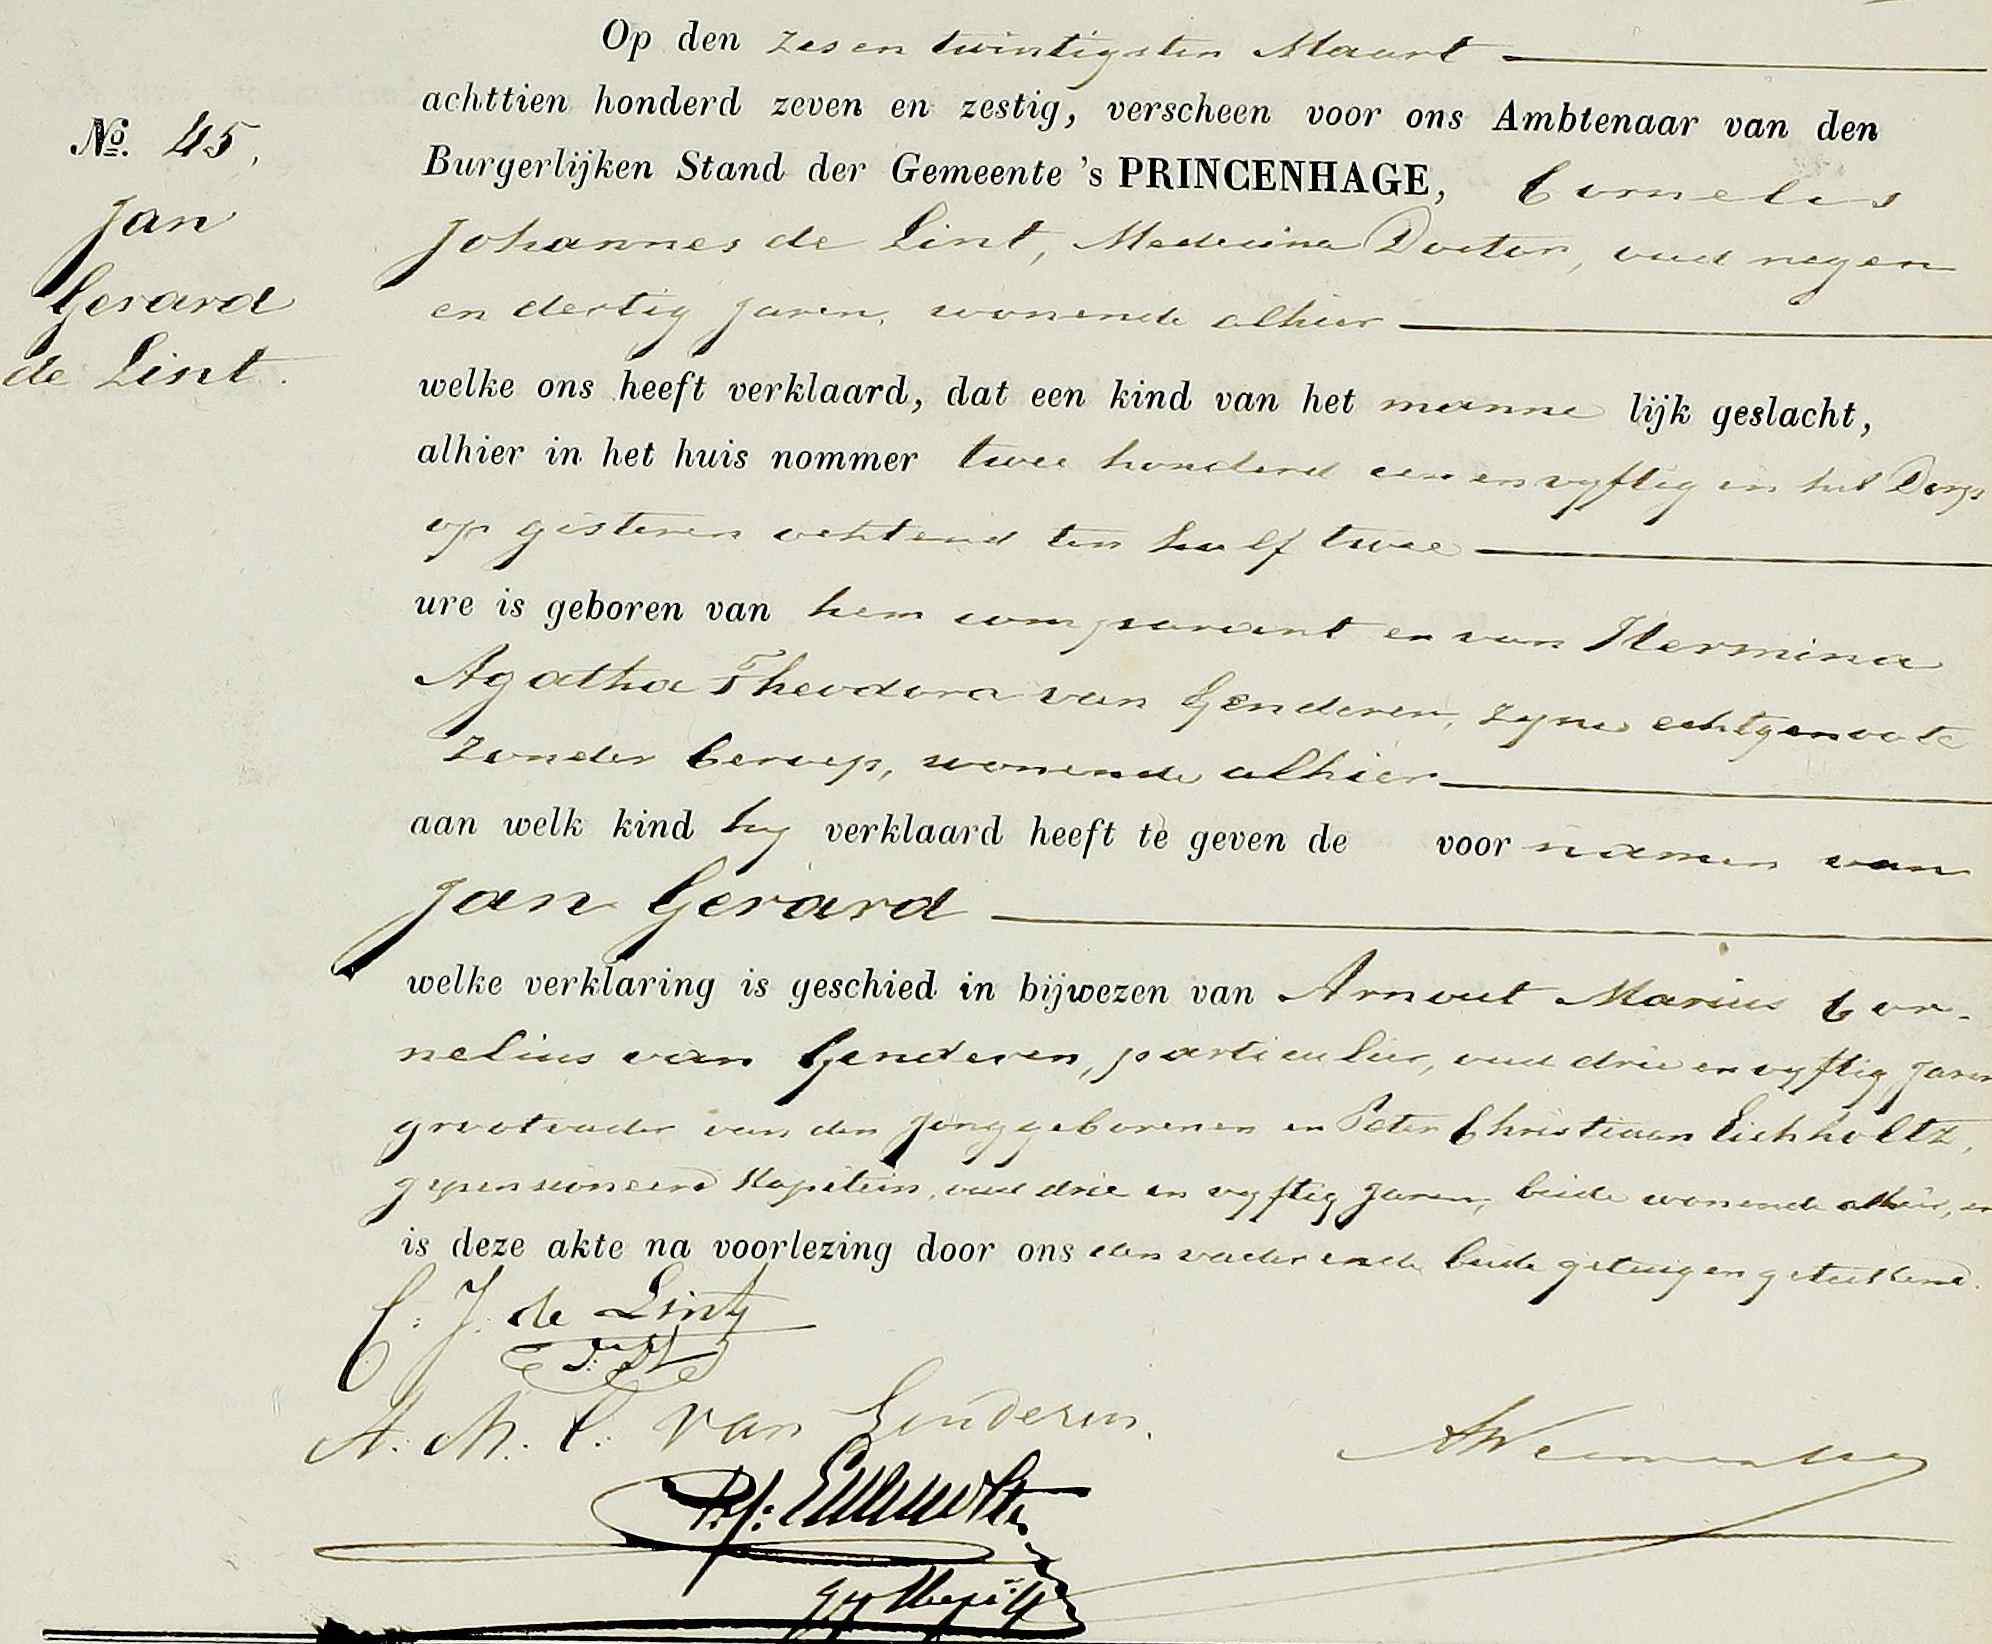 Op den zes en twintigsten Maart
achttien honderd zeven en zestig, verscheen voor ons Ambtenaar van den
No. 45.
Burgerlijken Stand der Gemeente 's PRINCENHAGE, Cornelis
Jan
Johannes de Lint, Medicina Doctor, oud negen
Gerard
en dertig jaren, wonende alhier
de Lint.
welke ons heeft verklaard, dat een kind van het manne lijk geslacht,
alhier in het huis nommer twee honderd een en vyftig in het Dorp
op gisteren ochtend ten half twee
ure is geboren van hem comparant en van Hermina
Agatha Theodora van Genderen, zyne echtgenoote
zonder beroep, wonende alhier
aan welk kind hy verklaard heeft te geven de voor namen van
Jan Gerard
welke verklaring is geschied in bijwezen van Arnout Marius Cor-
nelius van Genderen, particulier, oud drie en vyftig jaren
grootvader van den jonggeborenen en Peter Christiaan Eichholtz,
gepensioneerd Kapitein, oud drie en vyftig jaren, beide wonende alhier, en
is deze akte na voorlezing door ons den vader en de beide getuigen geteekend.
C. J. de Lint
A. M. C. van Genderen.